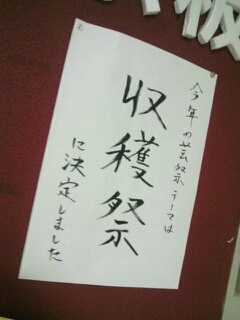 今年の芸祭テーマは
収穫祭
に決定しました